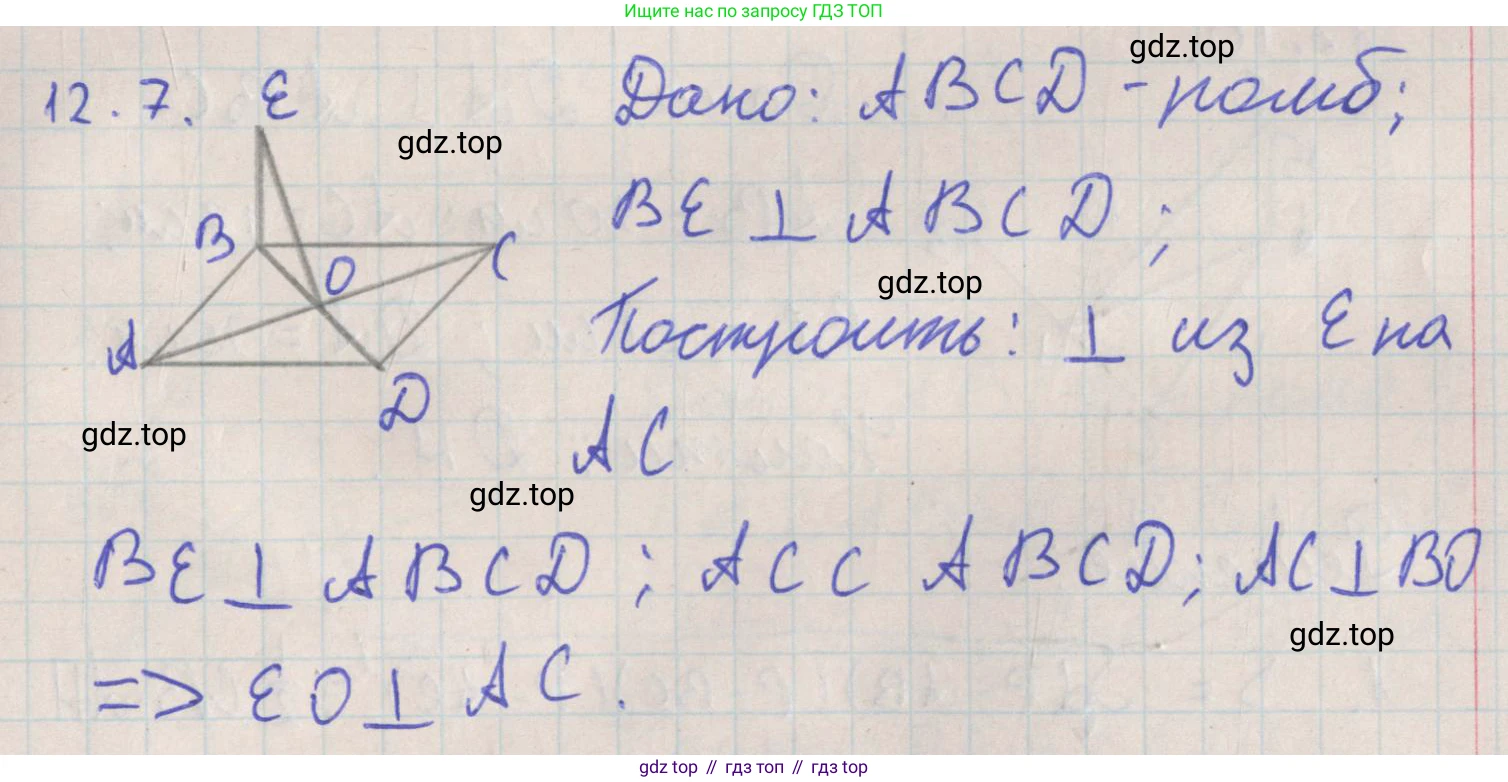 Ищите нас по запросу ГДЗ ТОП
12.7.
E
B
O
C
A
D
Дано: ABCD - ромб;
BE ⊥ ABCD;
Построить: ⊥ из E на
AC
BE ⊥ ABCD; AC ⊂ ABCD; AC ⊥ BO
=> EO ⊥ AC.
gdz.top
gdz.top
gdz.top
gdz.top
gdz.top
gdz.top
gdz top // гдз топ // гдз top